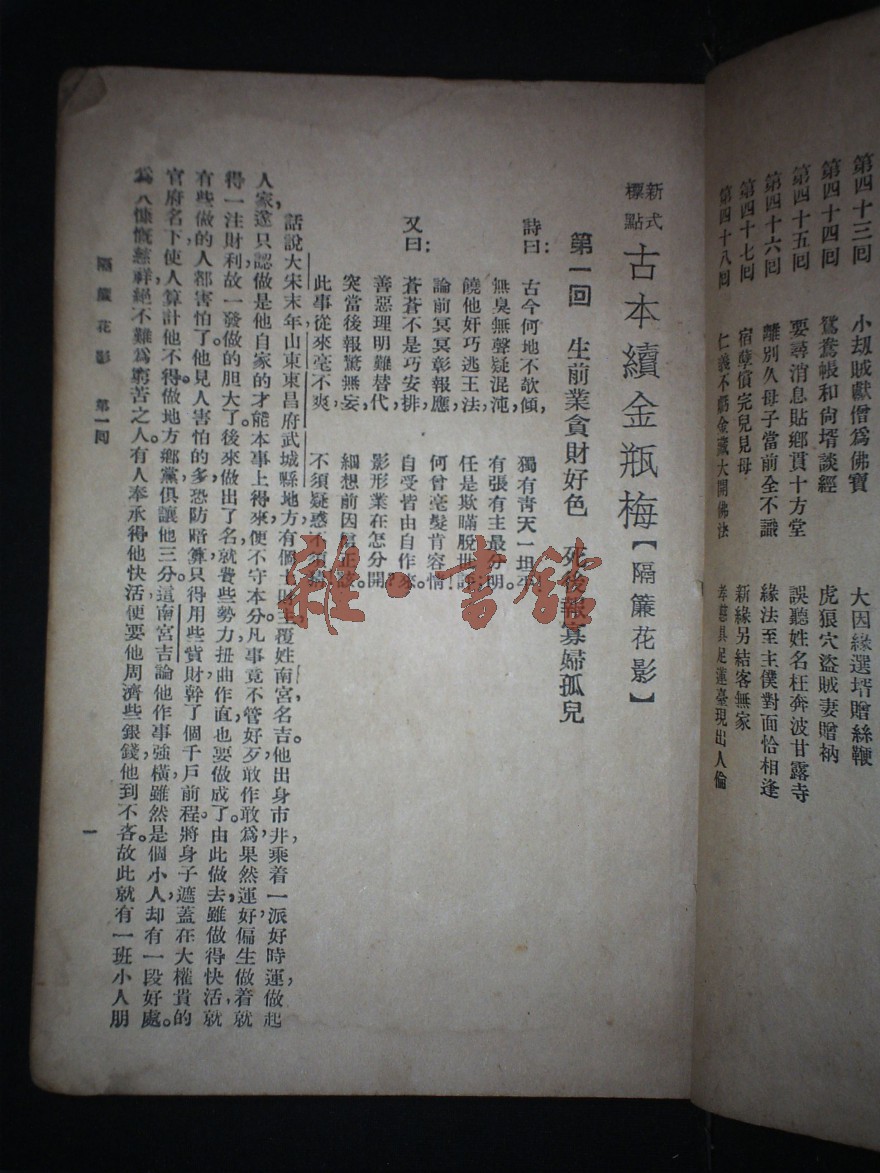 第四十三回　小劫賊獻僧為佛寶　大因緣選壻贈絲鞭
第四十四回　鴛鴦帳和尙壻談經　虎狼穴盜賊妻贈衲
第四十五回　要尋消息貼鄉貫十方堂　誤聽姓名枉奔波甘露寺
第四十六回　離別久母子當前全不識　緣法至主僕對面恰相逢
第四十七回　宿孽償完兒見母　新緣另結客無家
第四十八回　仁義不虧金藏大開佛法　孝慈具足蓮臺現出人倫
新式標點　古本續金瓶梅【隔簾花影】
第一回　生前業貪財好色　死後報寡婦孤兒
詩曰：　古今何地不欹傾，　獨有靑天一坦平，
無臭無聲疑混沌，　有張有主最分明。
饒他奸巧逃王法，　任是欺瞞脫世評；
論前冥冥彰報應，　何曾毫髮肯容情！
又曰：　蒼蒼不是巧安排，　自受皆由自作來。
善惡理明難替代，　影形業在怎分開？
突當後報驚無妄，　細想前因
此事從來毫不爽，　不須疑惑不須猜
話說大宋末年，山東東昌府武城縣地方有個土財主，覆姓南宮名吉。他出身市井，乘着一派好時運，做起
人家，遂只認做是他自家的才能本事上得來，便不守本分，凡事竟不管好歹，敢作敢爲，果然運好，偏生做着就
得一注財利，故一發做的胆大了。後來做出了名，就費些勢力扭曲作直，也要做成了。由此做去，雖做得快活，就
有些做的人都害怕了。他見人害怕的多，恐防暗算，只得用些貲財，幹了個千戶前程，將身子遮蓋在大權貴的
官府名下，使人算計他不得。做地方鄉黨俱讓他三分。這南宮吉論他作事強橫，雖然是個小人，却有一段好處。
爲人慷慨慈祥，絕不難爲窮苦之人，有人奉承得他快活，便要他周濟些銀錢，他到不吝。故此就有一班小人朋
隔簾花影　第一回
一
雜·書館